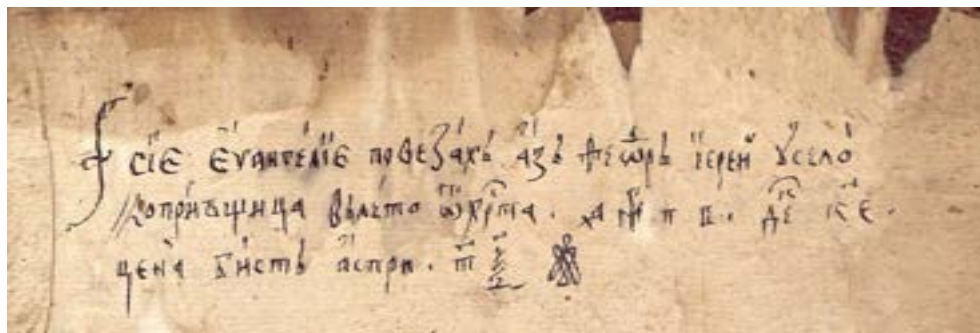 сїе еѵангелїе повезахь азь ѳеѡрь їереи ѹ село
копривщица влето ѿ хрⷭ҇та. а ѱ п в. дек к е.
цена бисть аспри. т